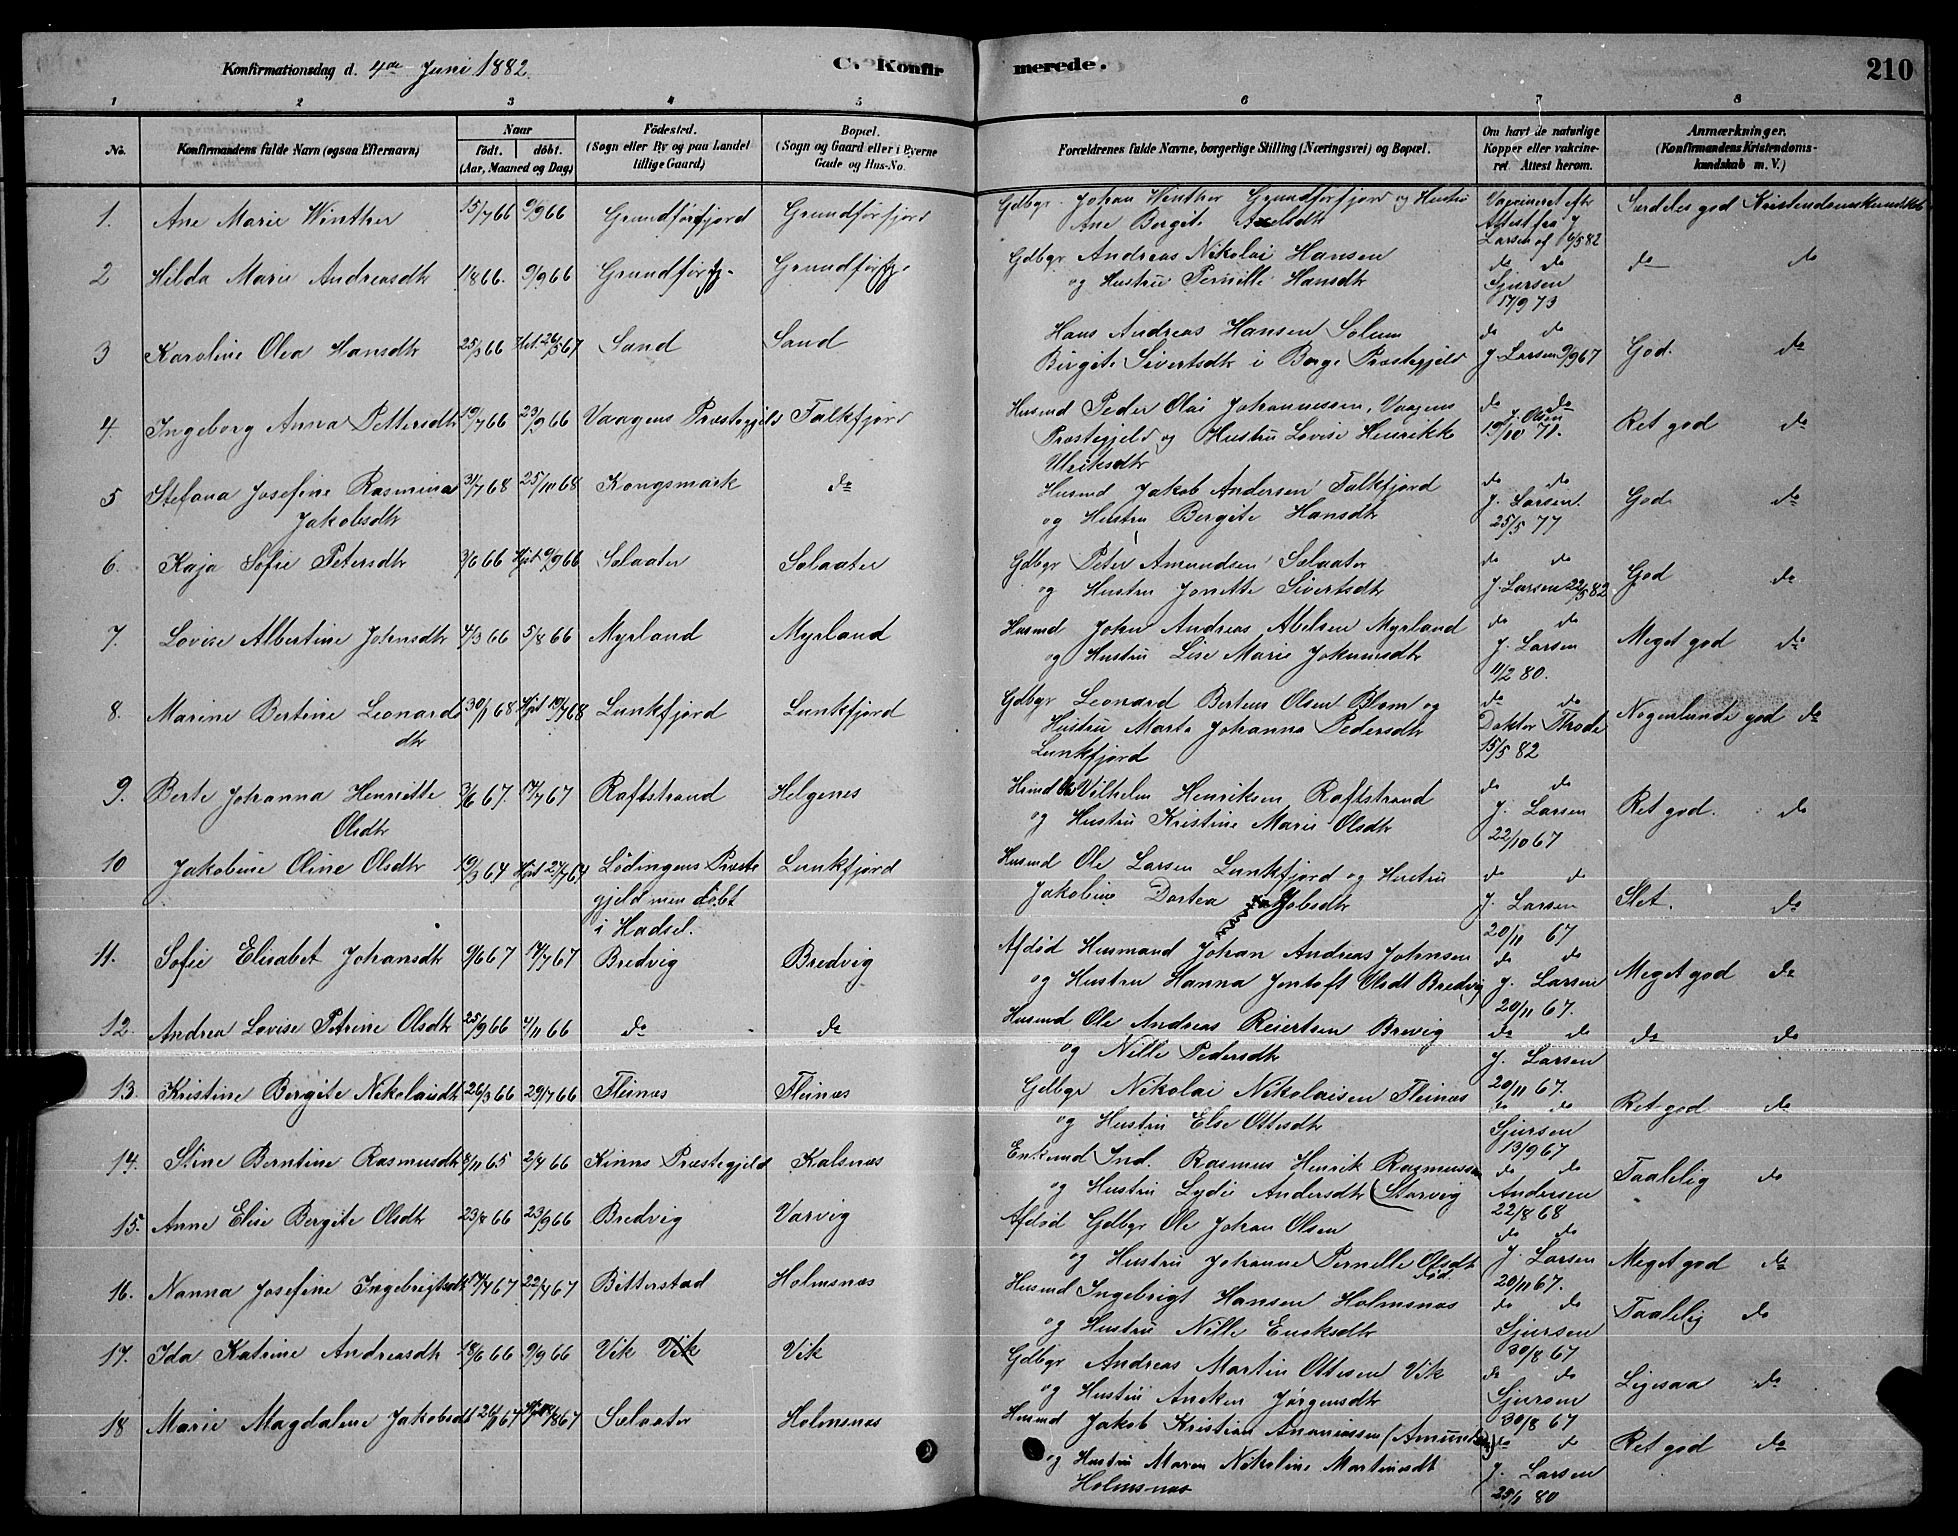 Konfirmationsdag d. 4de Juni 1882.
C. Konfirmerede.
210
1 2 3 4 5 6 7 8
No.
Konfirmandens fulde Navn (ogsaa Efternavn)
Naar
födt. döbt.
(Aar, Maaned og Dag)
Födested.
(Sogn eller By og paa Landet
tillige Gaard)
Bopæl.
(Sogn og Gaard eller i Byerne
Gade og Hus-No.
Forældrenes fulde Navne, borgerlige Stilling (Næringsvei) og Bopæl.
Om havt de naturlige
Kopper eller vakcine-
ret. Attest herom.
Anmærkninger.
(Konfirmandens Kristendoms-
kundskab m. V.)
1. Ane Marie Winther 15/7 66 9/9 66 Grundførfjord Grundförfjord
Gdbgr. Johan Winther Grundförfjord og Hustru
Ane Bergite Axelsdtr
Vaccineret eftr
Attest fra J
Larsen af 16/5 82
Særdeles god Kristendomskundskab
2 Hilda Marie Andreasdtr 1/8 66. 9/9 66 Grundförfj. Grundförfj.
Gdbgr Andreas Nikolai Hansen
og Hustru Pernille Hansdtr
do do
Sjursen
17/9 73
do do
3 Karoline Olea Hansdtr 25/3 66 26/5 67 Sand Sand
Hans Andreas Hansen Solem
Birgite Sivertsdtr i Borge Præstegjeld
do do
J. Larsen 9/9 67
God. do
4. Ingeborg Anna Pettersdtr 19/7 66 23/9 66 Vaagens Præstegjeld Falkfjord
Husmd Peder Olai Johannessen, Vaagens
Præstegjeld og Hustru Lovise Henrikke
Ulriksdtr
do do
J. Olsen
19/10 71.
Ret god do
5 Stefana Josefine Rasmina
Jakobsdtr
31/7 68 25/10 68 Kongsmark do
Husmd Jakob Andersen Falkfjord
og Hustru Bergite Hansdtr
do do
J. Larsen.
25/5 77
God do
6. Kaja Sofie Petersdtr 3/6 66 Hjdt 9/9 66 Selaater Selaater
Gdbgr Peter Amundsen Sælaater
og Hustru Jonette Sivertsdtr
do do
J. Larsen 22/5 82
God do
7. Lovise Albertine Johnsdtr 4/3 66 5/8 66 Myrland Myrland
Husmd John Andreas Abelsen Myrland
og Hustru Lise Marie Jokumsdtr
do do
J. Larsen
11/2 80.
Meget god do
8. Marine Bertine Leonards
dtr
30/1 68 Hjdt 19/7 68 Lunkfjord Lunkfjord
Gdbgr Leonard Bertens Olsen Blom og
Hustru Marta Johanna Pedersdtr
Lunkfjord
do do
Doktor Thode
15/5 82
Nogenlunde god do
9. Berte Johanna Henriette
Olsdtr
3/6 67. 14/7 67 Raftstrand Helgenes
Vilhelm Henriksen Raftstrand
og Hustru Kristine Marie Olsdtr
do do
J. Larsen
22/10 67
Ret god. do
10 Jakobine Oline Olsdtr 19/3 67 Lödingens Præste
gjeld men döbt
i Hadsel.
Lunkfjord
Husmd Ole Larsen Lunkfjord og Hustru
Jakobine Dortea Jobsdtr
do do
J. Larsen
20/11 67
Slet. do
11. Sofie Elisabet Johansdtr 9/6 67 14/7 67 Bredvig Bredvig
Afdød Husmand Johan Andreas Johnsen
og Hustru Hanna Jentoft Olsdt Bredvig
do do
J. Larsen
20/11 67.
Meget god do
12. Andrea Lovise Petrine Olsdtr 25/9 66 4/11 66 do do
Husmd Ole Andreas Reiertsen Brevig
og Nille Pedersdtr
do do
J. Larsen
20/11 67.
do do
13. Kristine Bergite Nikolaisdtr 26/3 66 29/7 66 Fleinæs Fleinæs
Gdbgr Nikolai Nikolaisen Fleinæs
og Hustru Else Ottesdtr
do do
Sjursen
13/9 67
Ret god do
14. Stine Berntine Rasmusdtr 8/11 65 2/4 66 Kinns Præstegjeld Kalsnæs
Enkemd Ind. Rasmus Henrik Rasmussen
og Hustru Lydie Andersdtr (Storvig
do do
Andersen
22/8 68
Taalelig do
15. Anne Elise Bergite Olsdtr 23/8 66 23/9 66 Bredvig Varvig
Afdöd Gdbgr Ole Johan Olsen
og Hustru Johanne Pernelle Olsdtr
död
do do
J. Larsen
20/11 67.
Meget god do
16. Nanna Josefine Ingebrigtsdtr 14/4 67 22/4 67 Bitterstad Holmsnæs
Husmd Ingebrigt Hansen Holmsnæs
og Hustru Nille Enoksdtr
do do
Sjursen
30/8 67
Taalelig do
17. Ida Katrine Andreasdtr 18/6 66 9/9 66 Vik Vik Vik
Gdbgr Andreas Martin Ottesen Vik
og Hustru Ancken Jørgensdtr
do do
Sjursen
30/8 67
Ligesaa do
18 Marie Magdalene Jakobsdt Sælaater Holmsnæs
Husmd Jakob Kristian Ananiassen (Amundsen)
og Hustru Maren Nikoline Martinusdtr
Holmsnæs
do do
J. Larsen
25/1 80
Ret god do